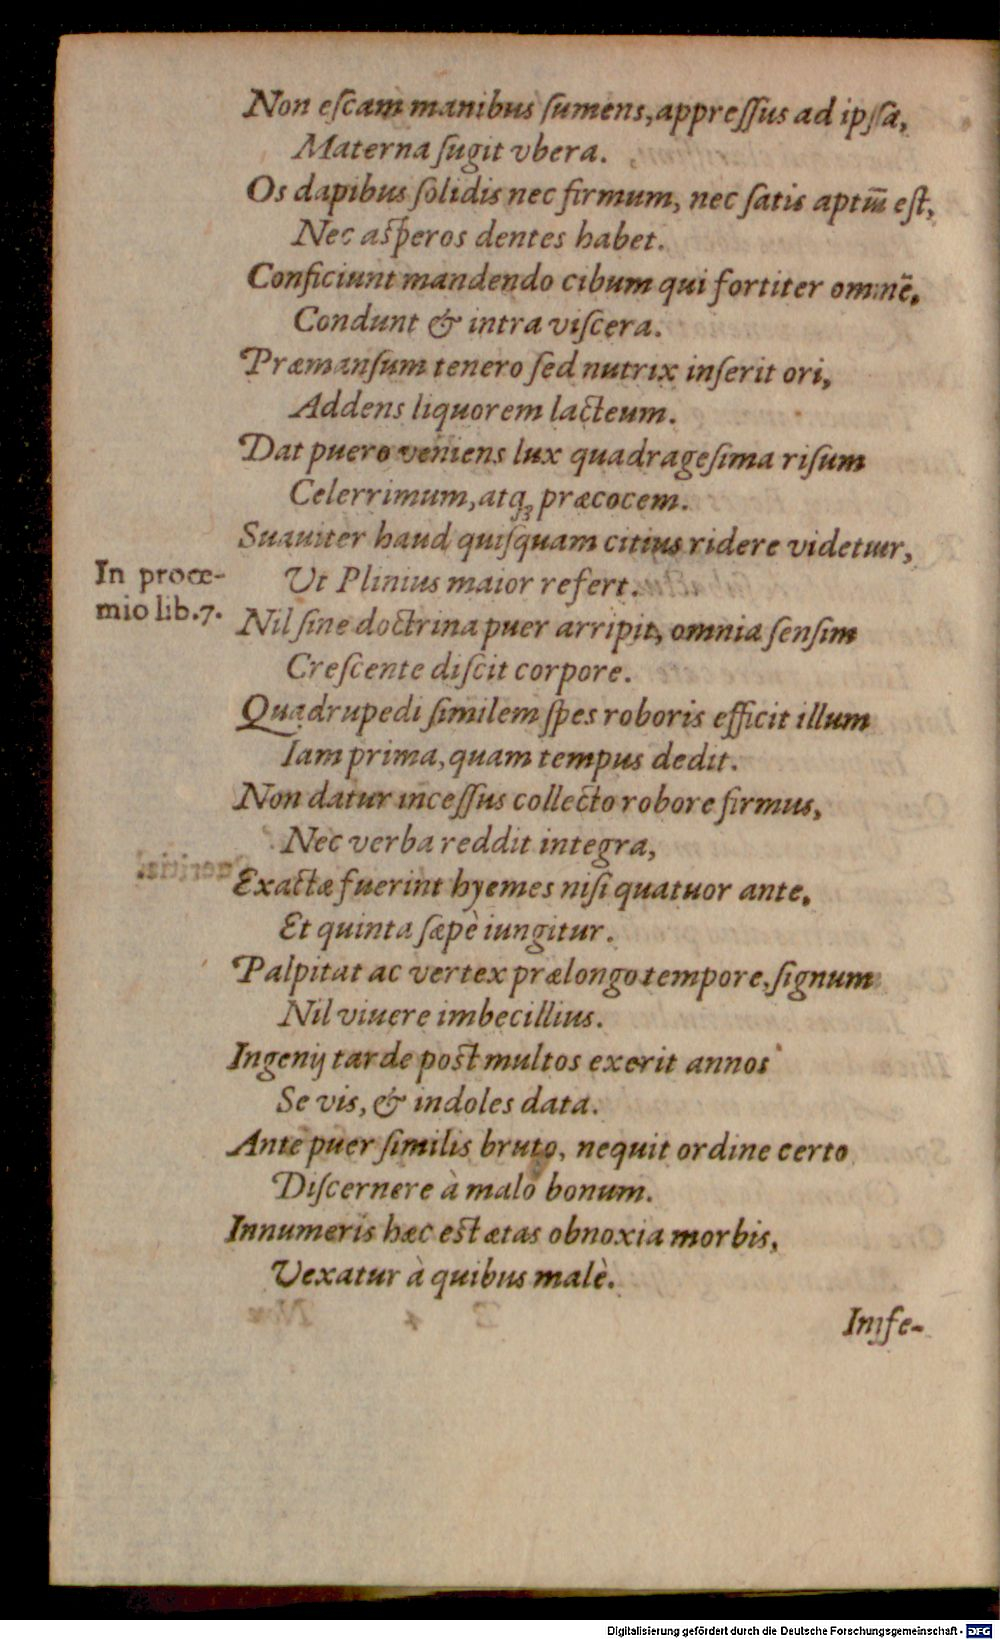 Non eſcam manibus ſumens, appreſſus ad ipſa,
Materna ſugit vbera.
Os dapibus ſolidis nec firmum, nec ſatis aptū eſt,
Nec aſperos dentes habet.
Conficiunt mandendo cibum qui fortiter omnē.
Condunt & intra viſcera.
Præmanſum tenero ſed nutrix inſerit ori,
Addens liquorem lacteum.
Dat puero veniens lux quadrageſima riſum
Celerrimum, atq; præcocem.
Suauiter haud quiſquam citius ridere videtur,
In procœ-
mio lib.7.
Ut Plinius maior refert.
Nil ſine doctrina puer arripit, omnia ſenſim
Creſcente diſcit corpore.
Quadrupedi ſimilem ſpes roboris efficit illum
Iam prima, quam tempus dedit.
Non datur inceſſus collecto robore firmus,
Nec verba reddit integra,
Exactæ fuerint hyemes niſi quatuor ante.
Et quinta ſæpè iungitur.
Palpitat ac vertex prælongo tempore, ſignum
Nil viuere imbecillius.
Ingenij tarde poſt multos exerit annos
Se vis, & indoles data.
Ante puer ſimilis bruto, nequit ordine certo
Diſcernere à malo bonum.
Innumeris hæc eſt ætas obnoxia morbis,
Vexatur à quibus malè.
Digitalisierung gefördert durch die Deutsche Forschungsgemeinschaft - DFG